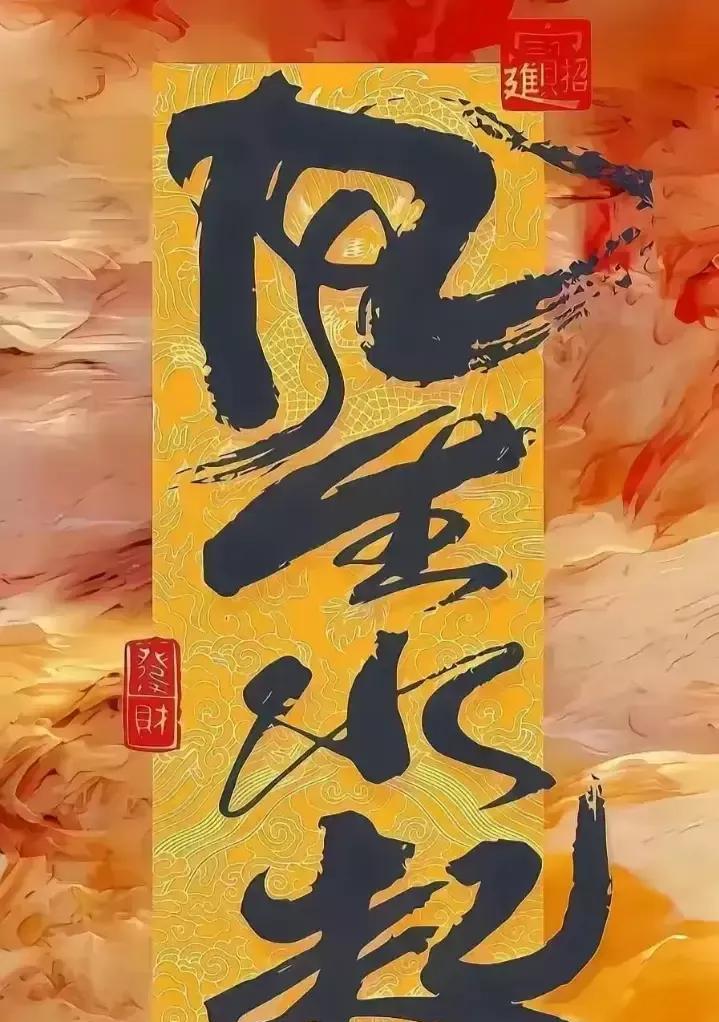 招財進寶
風生水起
發財